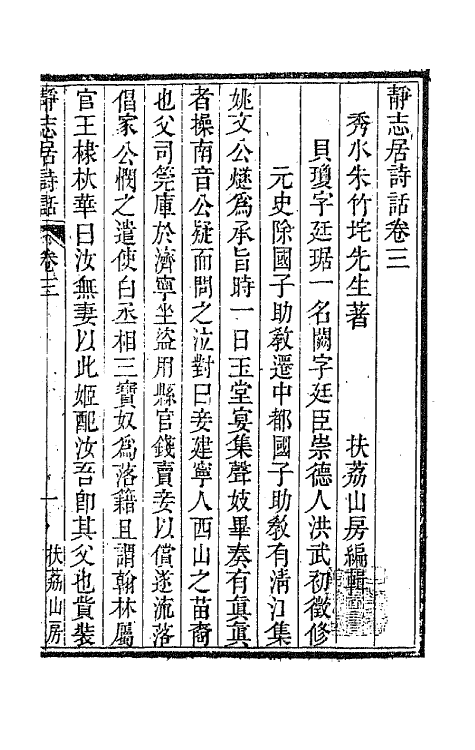 靜志居詩話卷三
秀水朱竹垞先生著　扶荔山房編輯
貝瓊字廷琚一名闕字廷臣崇德人洪武初徵修
元史除國子助教遷中都國子助教有淸江集
姚文公燧為承旨時一日玉堂宴集聲妓畢奏有眞眞
者操南音公疑而問之泣對曰妾建寧人西山之苗裔
也父司筦庫於濟寧坐盜用縣官錢賣妾以償遂流落
倡家公憫之遣使白丞相三寶奴為落籍且謂翰林屬
官王棣杕華曰汝無妻以此姬配汝吾卽其父也貲裝
靜志居詩話　卷三　一　扶荔山房